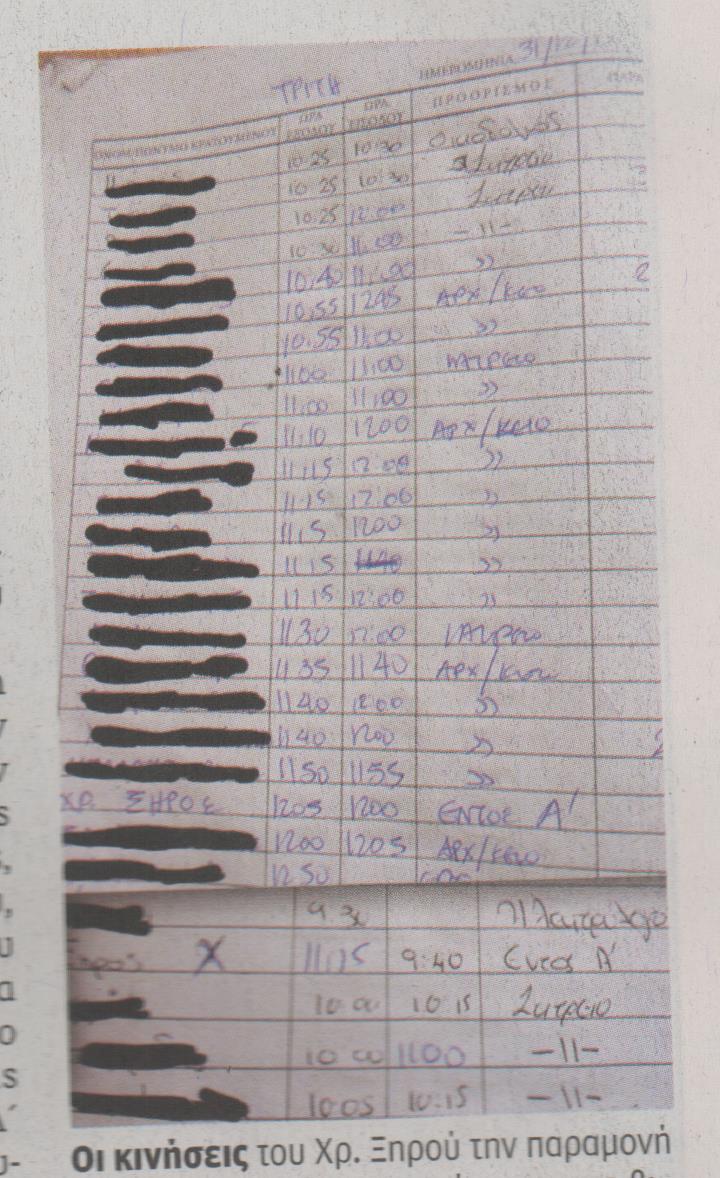 ΤΡΙΤΗ ΗΜΕΡΟΜΗΝΙΑ 31/12/
ΟΝΟΜ/ΠΩΝΥΜΟ ΚΡΑΤΟΥΜΕΝΟΥ ΩΡΑ ΕΞΟΔΟΥ ΩΡΑ ΕΙΣΟΔΟΥ ΠΡΟΟΡΙΣΜΟΣ ΠΑΡΑ
10:25 10:30
10:25 10:30 Ιατρείο
10:25 12:00 Ιατρείο
10:30 11:00 -11-
10:40 11:00 »
10:55 1245 ΑΡΧ/κειο 2
10:55 11:00 »
1100 11:00 Ιατρείο
11:00 11:00 »
11:10 1200 ΑΡΧ/κειο
11:15 12:00 »
11:15 12:00 »
11:15 1200 »
11 15 1140 »
11 15 12:00 »
1130 12:00 Ιατρείο
1135 1140 ΑΡΧ/κειο
1140 12:00 »
1140 1200 »
1150 1155 »
ΧΡ. ΞΗΡΟΣ 1205 1200 ΕΝΤΟΣ Α'
1200 1205 ΑΡΧ/κειο
1250
9:30
Ξηρός Χ 11:15 9:40 Εντος Α'
10 00 10 15 Ιατρείο
10 00 1100 -11-
10:05 10:15 -11-
Οι κινήσεις του Χρ. Ξηρού την παραμονή